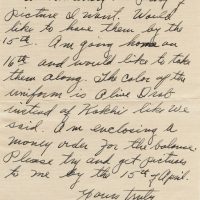 picture I want. Would
like to have them by the
15th. Am going home on
16th and would like to take
them along. The color of the
uniform is Olive Drab
instead of Kakhi like we
said. Am enclosing a
money order for the balance.
Please try and get pictures
to me by the 15th of April.
Yours truly